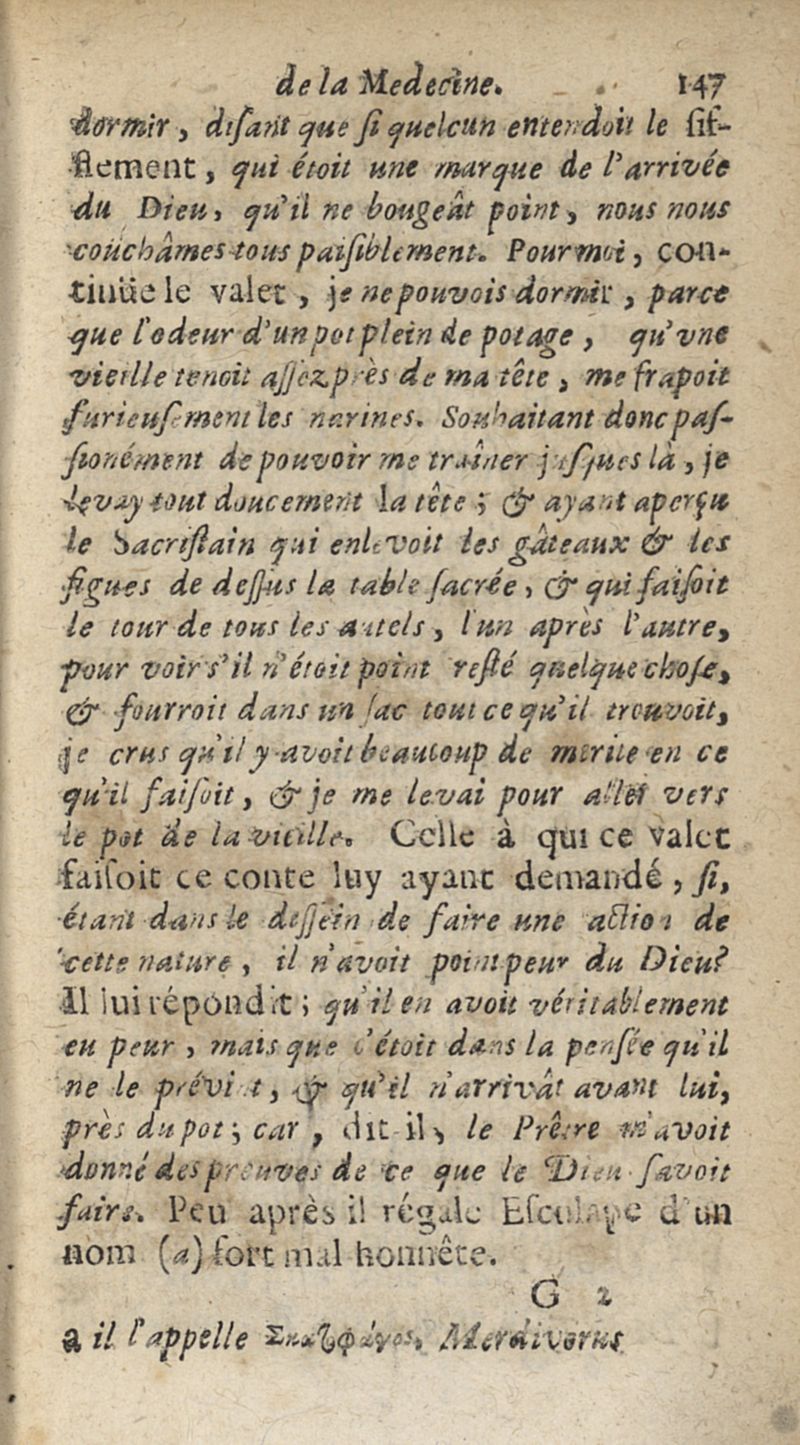 de la Medecine. 147
dormir, disant que si quelcun entendoit le sif-
flement, qui étoit une marque de l'arrivée
du Dieu, qu'il ne bougeât point, nous nous
couchâmes tous paisiblement. Pour moi, con-
tinüe le valet, je ne pouvois dormir, parce
que l'odeur d'un pot plein de potage, qu'vne
vieille tenoit assez près de ma tête, me frapoit
furieusement les narines. Souhaitant donc pas-
sionément de pouvoir me trainer jusques là, je
levay tout doucement la tête; & ayant aperçu
le Sacristain qui enlevoit les gâteaux & les
figues de dessus la table sacrée, & qui faisoit
le tour de tous les autels, l'un après l'autre,
pour voir s'il n'étoit point resté quelque chose,
& fourroit dans un sac tout ce qu'il trouvoit,
je crus qu'il y avoit beaucoup de merite en ce
qu'il faisoit, & je me levai pour aller vers
le pot de la vieille. Celle à qui ce valet
faisoit ce conte luy ayant demandé, si,
étant dans le dessein de faire une action de
cette nature, il n'avoit point peur du Dieu?
Il lui répondit; qu'il en avoit véritablement
eu peur, mais que c'étoit dans la pensée qu'il
ne le prévint, & qu'il n'arrivât avant lui,
près du pot; car, dit-il, le Prêtre m'avoit
donné des preuves de ce que le Dieu savoit
faire. Peu après il régale Esculape d'un
nom (a) fort mal honnête.
G 2
a il l'appelle Merdivorus